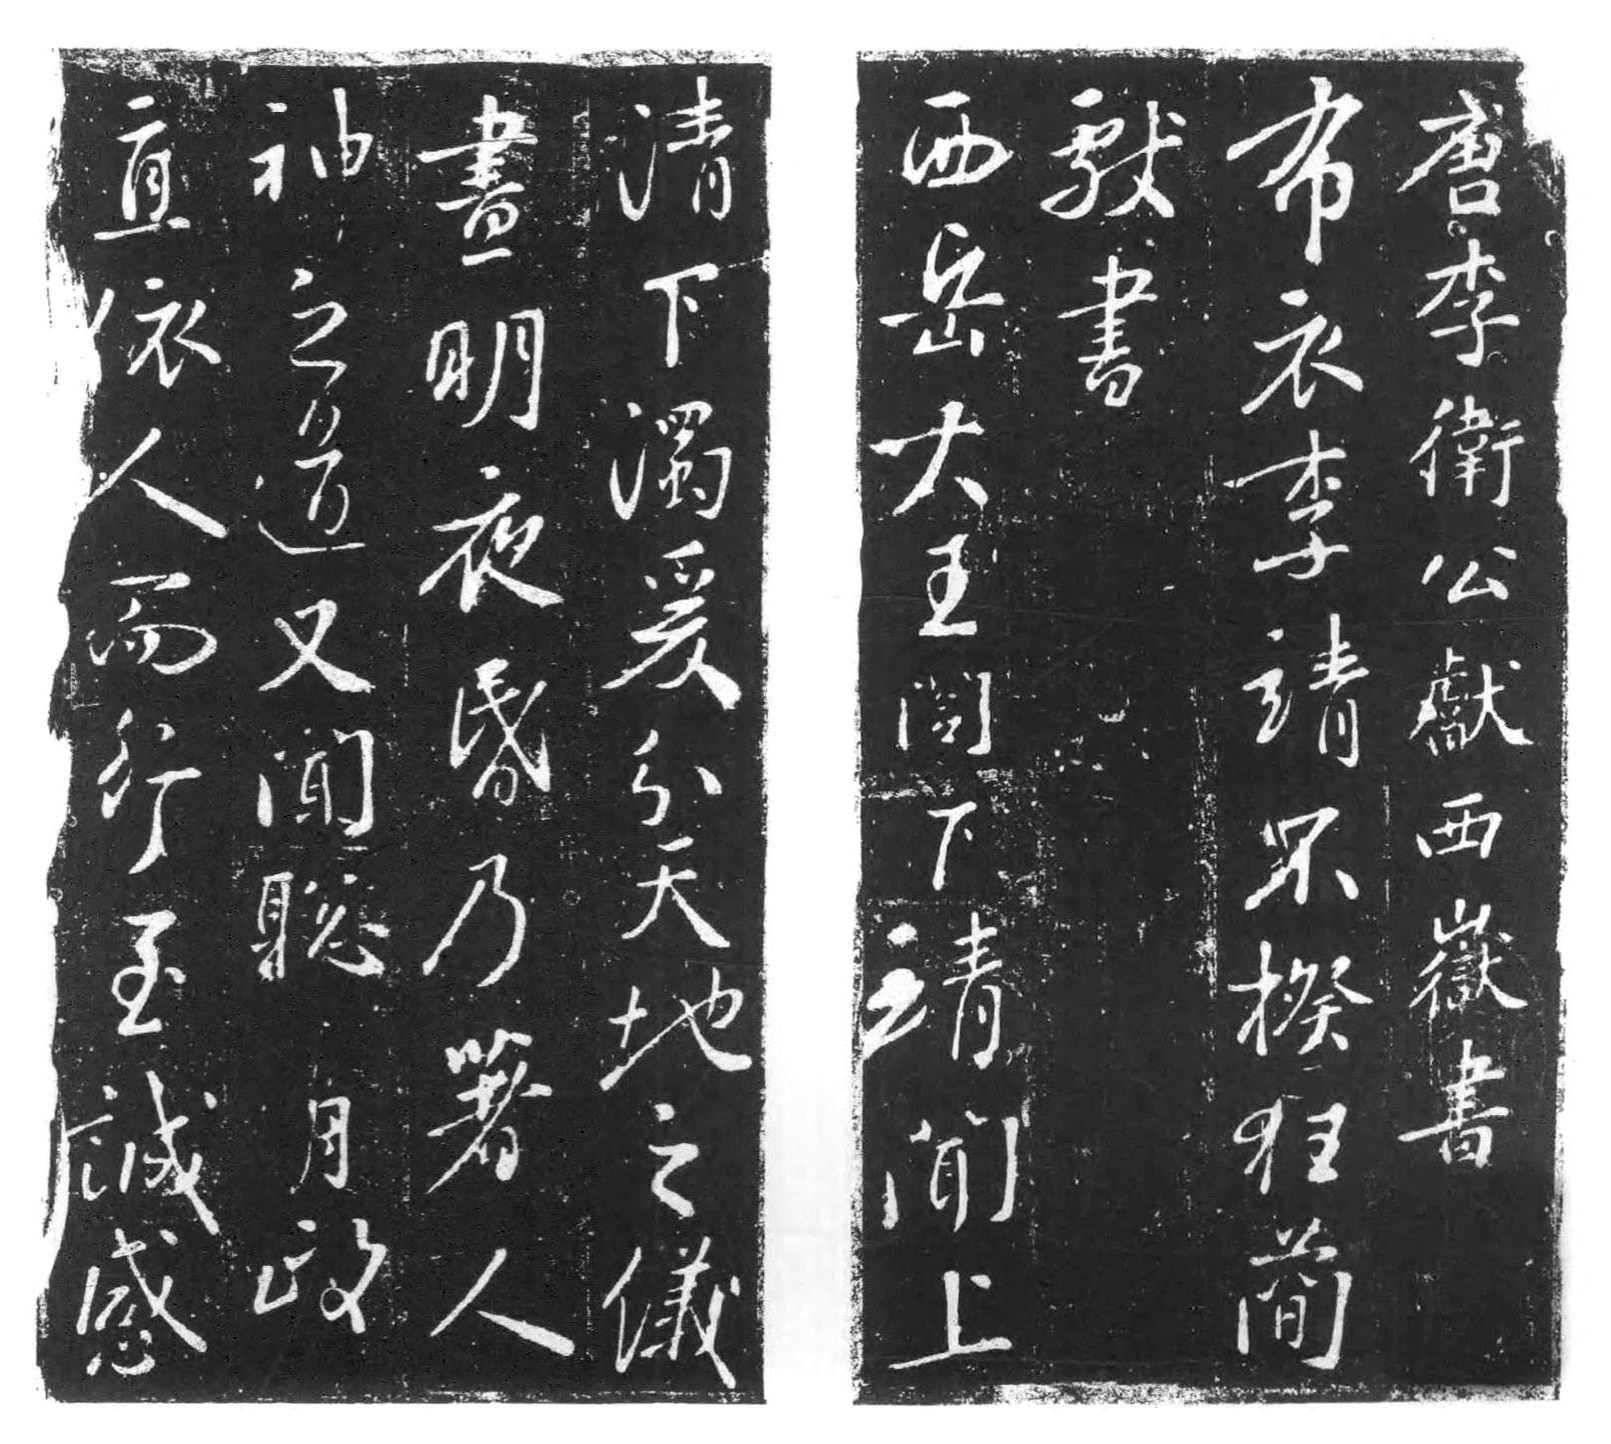 唐李衛公獻西嶽書
布衣李靖不揆狂簡
獻書
西岳大王閣下靖聞上
清下濁爰分天地之儀
晝明夜昏乃著人
神之道又聞聰明正
直依人而行至誠感